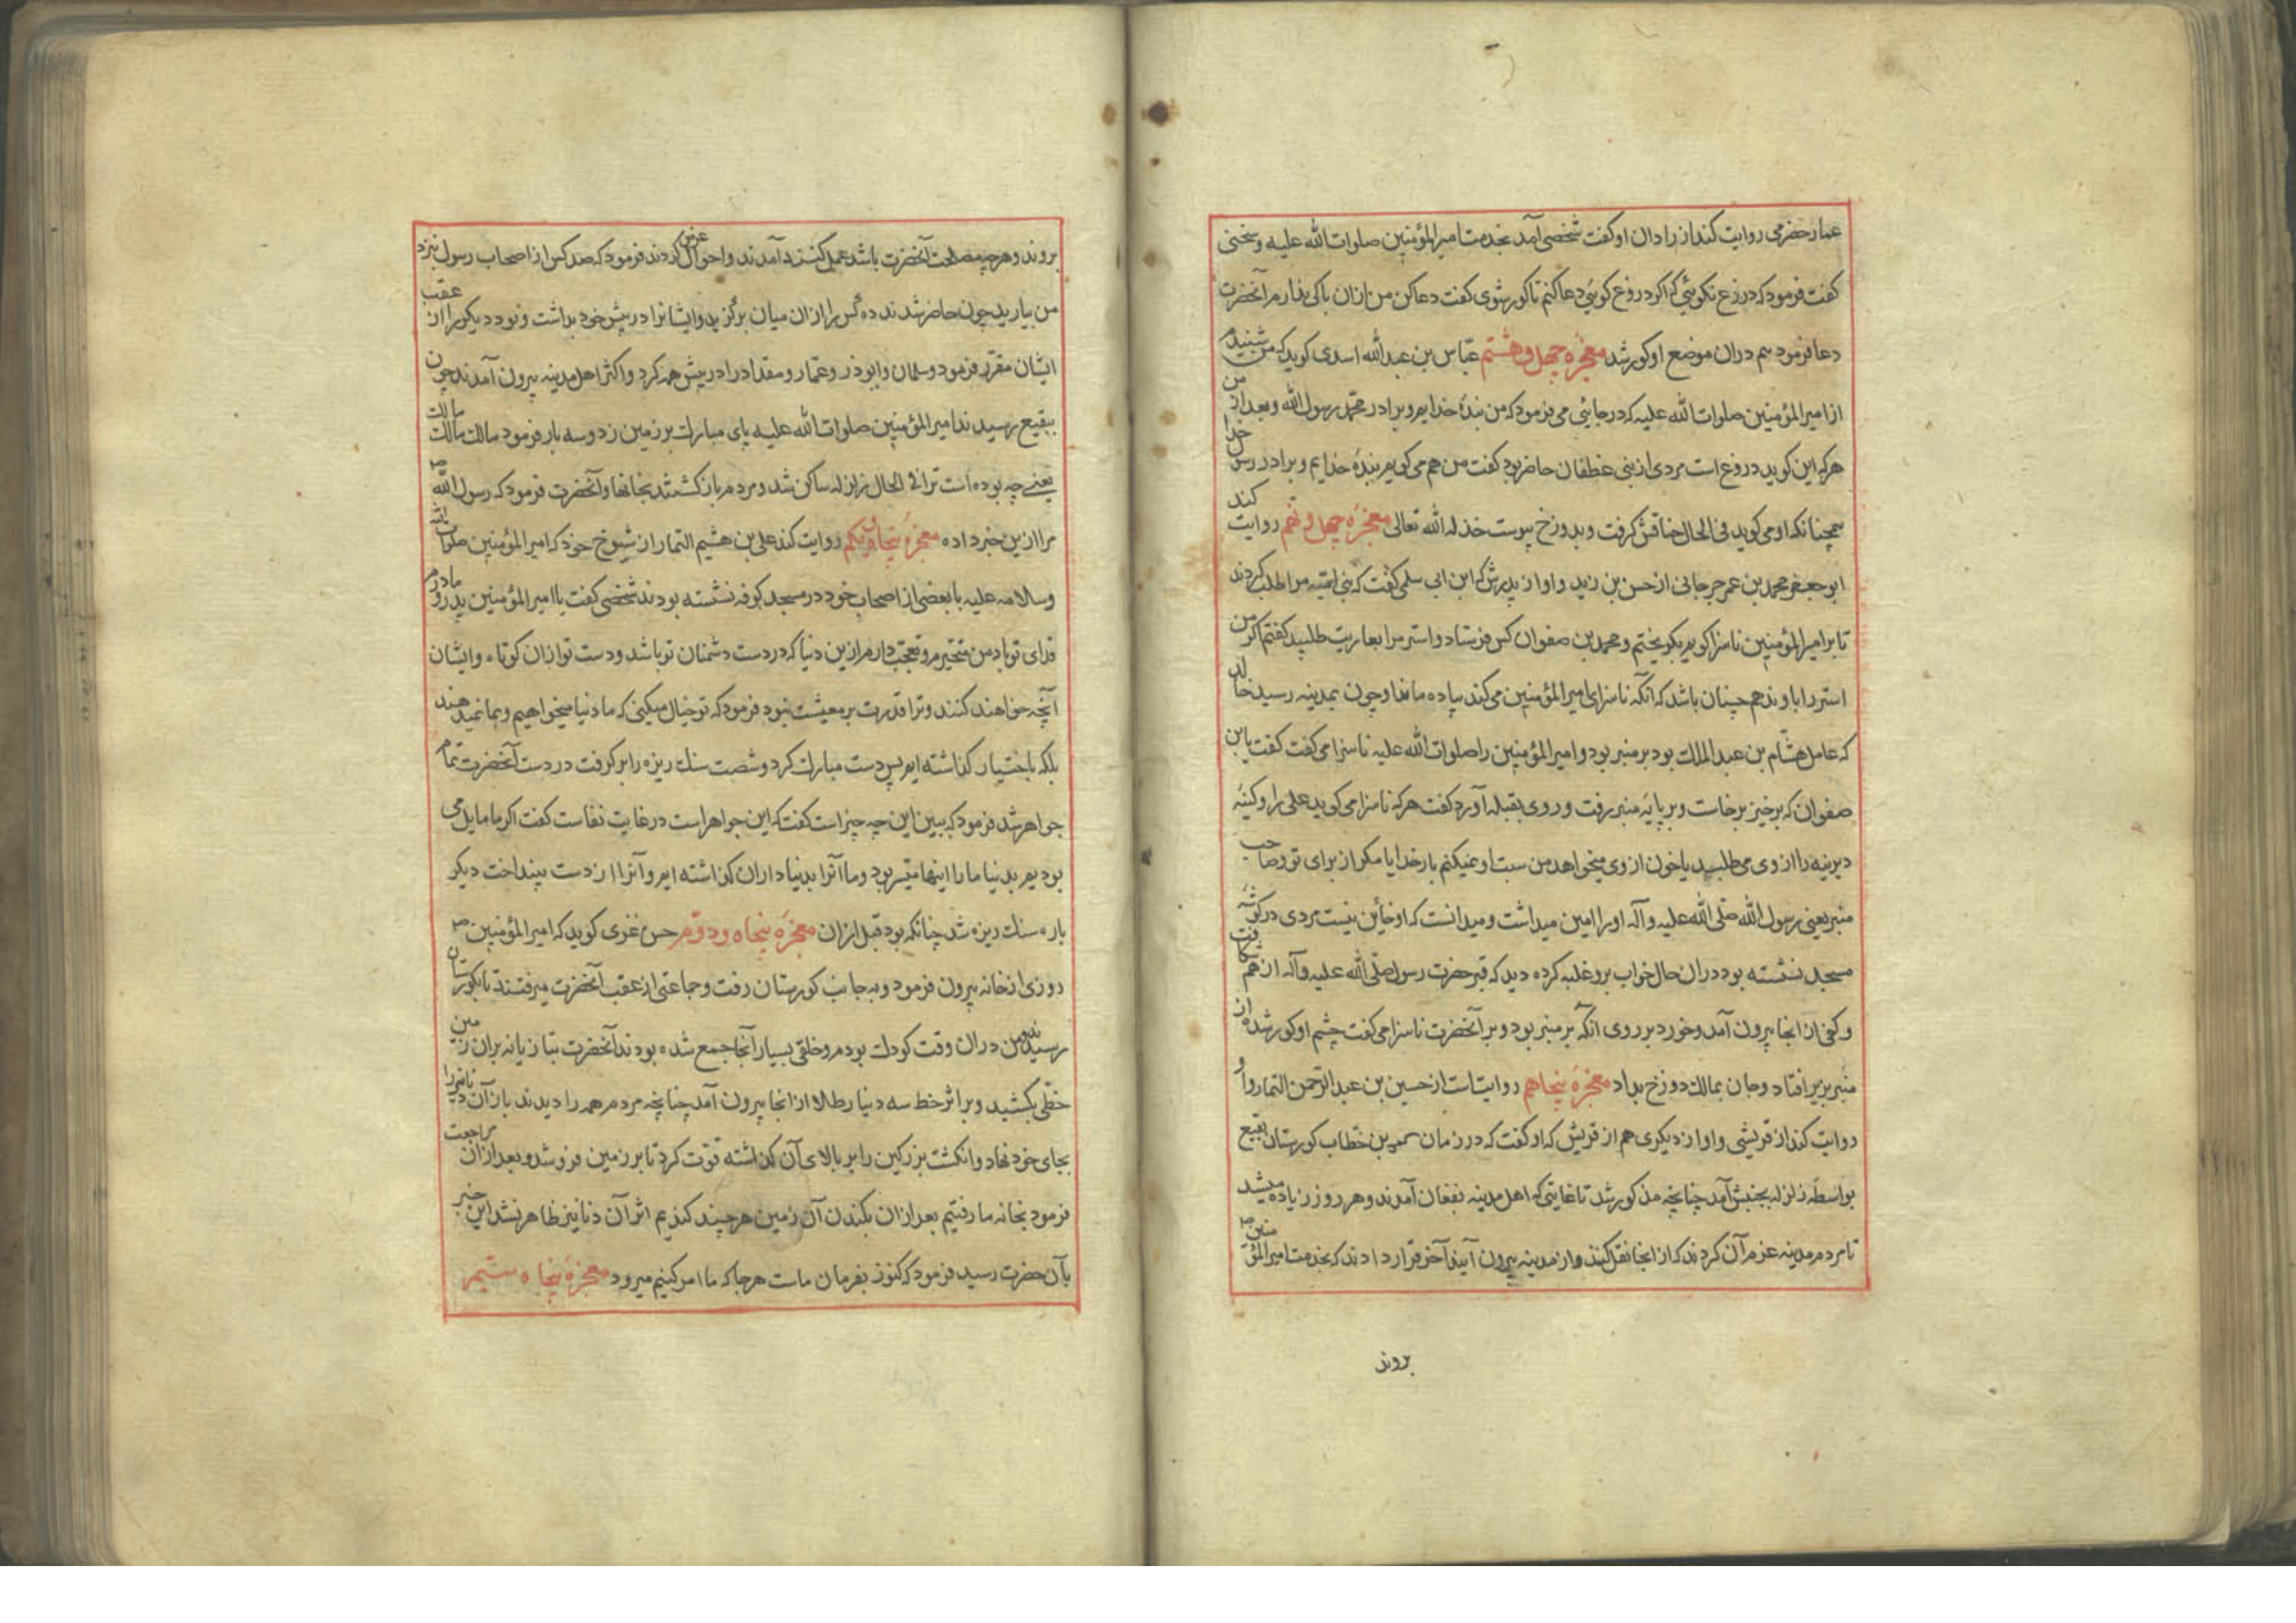 عمار حضرمی روایت کند از زادان او گفت شخصی آمد بخدمت امیرالمؤمنین صلوات الله علیه و سخنی
گفت فرمود که دروغ نکوئی که اکر دروغ کوئی دعا کنم تا کور شوی گفت دعا کن من ازان باکی ندارم آنحضرت
دعا فرمود هم دران موضع او کور شد معجزهٔ چهل و هشتم عبّاس بن عبدالله اسدی کوید که من شنیدم
از امیرالمؤمنین صلوات الله علیه که در جائی می فرمود که من بندهٔ خدایم و برادر محمّد رسول الله و بعد از من
هرکه این کوید دروغ است مردی از بنی غطفان حاضر بود گفت من هم می کویم بندهٔ خدایم و برادر رسول خدا
همچنانکه او می کوید فی الحال خناقش کرفت و بدوزخ پیوست خذله الله تعالی معجزهٔ چهل و نهم روایت کند
ابو جعفر محمد بن عمر جرجانی از حسن بن زید و او از پدرش که ابن ابی سلمی گفت که بنی امیّه مرا طلب کردند
تا برا امیرالمؤمنین ناسزا کویم بکریختم و محمد بن صفوان کس فرستاد و استر مرا بعاریت طلبید گفتم اکر من
استر را باو ندهم چنان باشد که آنکه ناسزای امیرالمؤمنین می کند پیاده ماند او چون بمدینه رسید خالد
که عامل هشام بن عبدالملک بود بر منبر بود و امیرالمؤمنین را صلوات الله علیه ناسزا می گفت گفت یا ابن
صفوان که برخیز برخاست و بر پایهٔ منبر رفت و روی بقبله آورد گفت هرکه ناسزا می کوید علی را و کینهٔ
دیرینه را از وی می طلبد یا خون از وی میخواهد من سبت او نمیکنم بار خدایا مکر از برای تو و صاحب
منبر یعنی رسول الله صلّی الله علیه و آله او را امین میداشت و میدانست که او خائن نیست مردی در کوشهٔ
مسجد نشسته بود دران حال خواب برو غلبه کرده دید که قبر حضرت رسول صلّی الله علیه و آله از هم شکافت
و کفی از انجا بیرون آمد و خورد بر روی آنکه بر منبر بود و بر آنحضرت ناسزا می گفت چشم او کور شده از
منبر بزیر افتاد و جان بمالک دوزخ بداد معجزهٔ پنجاهم روایت است از حسین بن عبدالرّحمن التمار و او
روایت کند از قریشی و او از دیکری هم از قریش که او گفت که در زمان عمر بن خطّاب کورستان بقیع
بواسطهٔ زلزله بجنبش آمد چنانچه مذکور شد تا غایتی که اهل مدینه بفغان آمدند و هر روز زیاده میشد
تا مردم مدینه عزم آن کردند که از انجا نقل کنند و از مدینه بیرون آیند آخر قرار دادند که بخدمت امیرالمؤمنین
بروند
بروند و هرچه مصلحت آنحضرت باشد عمل کنند آمدند و احوال عرض کردند فرمود که صد کس از اصحاب رسول بنزد
من بیارید چون حاضر شدند ده کس را ازان میان برکزید و ایشانرا در پیش خود بداشت و نود دیکر را از عقب
ایشان مقرّر فرمود و سلمان و ابوذر و عمّار و مقداد را در پیش همه کرد و اکثر اهل مدینه بیرون آمدند چون
ببقیع رسیدند امیرالمؤمنین صلوات الله علیه پای مبارک بر زمین زد و سه بار فرمود مالک مالک مالک
یعنی چه بوده است ترا فی الحال زلزله ساکن شد و مردم باز کشتند بخانها و آنحضرت فرمود که رسول الله
مرا ازین خبر داده معجزهٔ پنجاه و یکم روایت کند علی بن هشیم التمار از شیوخ خود که امیرالمؤمنین صلوات الله
و سلامه علیه با بعضی از اصحاب خود در مسجد کوفه نشسته بودند شخصی گفت یا امیرالمؤمنین پدر و مادرم
فدای تو باد من متحیّرم و تعجّب دارم ازین دنیا که در دست دشمنان تو باشد و دست تو ازان کوتاه و ایشان
آنچه خواهند کنند و ترا قدرت بر معیشت نبود فرمود که تو خیال میکنی که ما دنیا میخواهیم و بما نمیدهند
بلکه باختیار کذاشته ایم پس دست مبارک کرد و شصت سنک ریزه را برکرفت در دست آنحضرت تمام
جواهر شد فرمود که ببین این چه چیز است گفت که این جواهر است در غایت نفاست گفت اکر ما مایل می
بودیم بدنیا ما را اینها میّسر بود و ما آنرا بدنیا داران کذاشته ایم و آنرا از دست بینداخت دیکر
باره سنک ریزه شد چنانکه بود قبل ازان معجزهٔ پنجاه و دوّم حسن غزی کوید که امیرالمؤمنین
روزی از خانه بیرون فرمود و به جانب کورستان رفت و جماعتی از عقب آنحضرت میرفتند تا بکورستان
رسیدند و من دران وقت کودک بودم و خلقی بسیار آنجا جمع شده بودند آنحضرت بتازیانه بران زمین
خطّی بکشید و بر اثر خط سه دینار طلا از انجا بیرون آمد چنانچه مردم همه را دیدند باز آن دنانیر را
بجای خود نهاد و انکشت بزرکین را بر بالای آن کذاشته قوّت کرد تا بر زمین فرو شد و بعد ازان مراجعت
فرمود بخانه ما رفتیم بعد ازان بکندن آن زمین هر چند کندیم اثر آن دنانیر ظاهر نشد این خبر
بآن حضرت رسید فرمود که کنوز بفرمان ماست هرجا که ما امر کنیم میرود معجزهٔ پنجاه سیّم